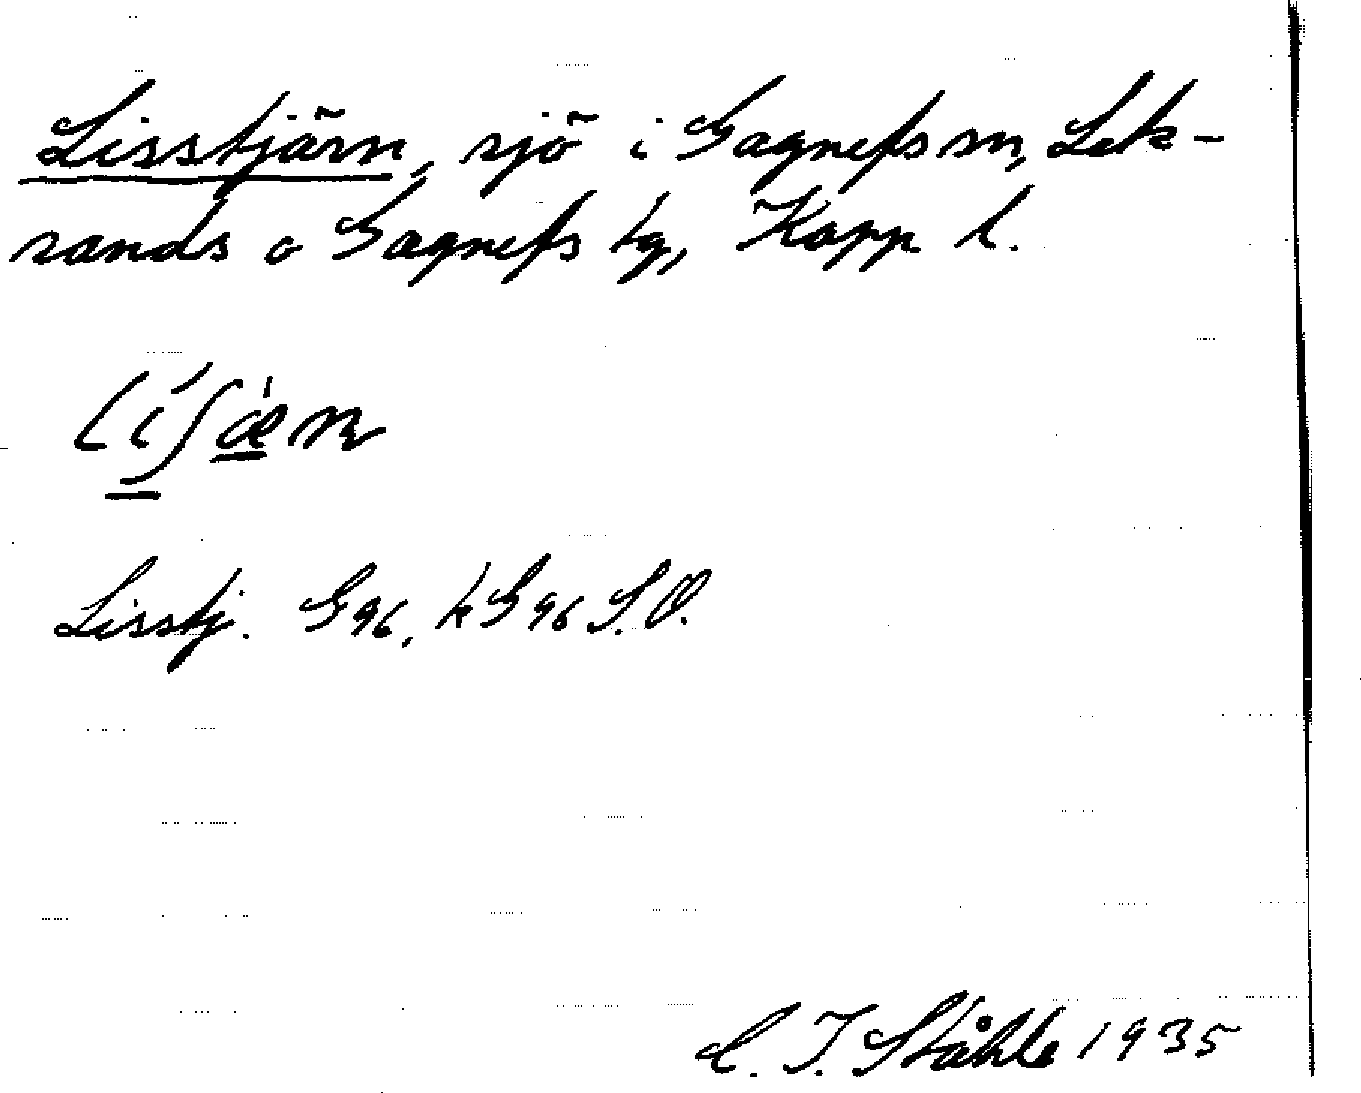 Lisstjärn, sjö i Gagnefs sn, Lek-
sands o Gagnefs tg, Kopp l.
Lisstj. G96, kG96 S.O.
C. I. Ståhle 1935